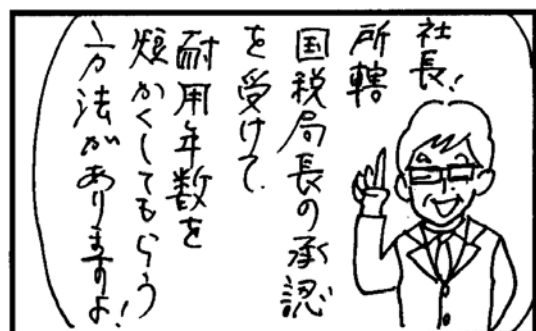 社長!
所轄
国税局長の承認
を受けて
耐用年数を
短かくしてもらう
方法がありますよ!